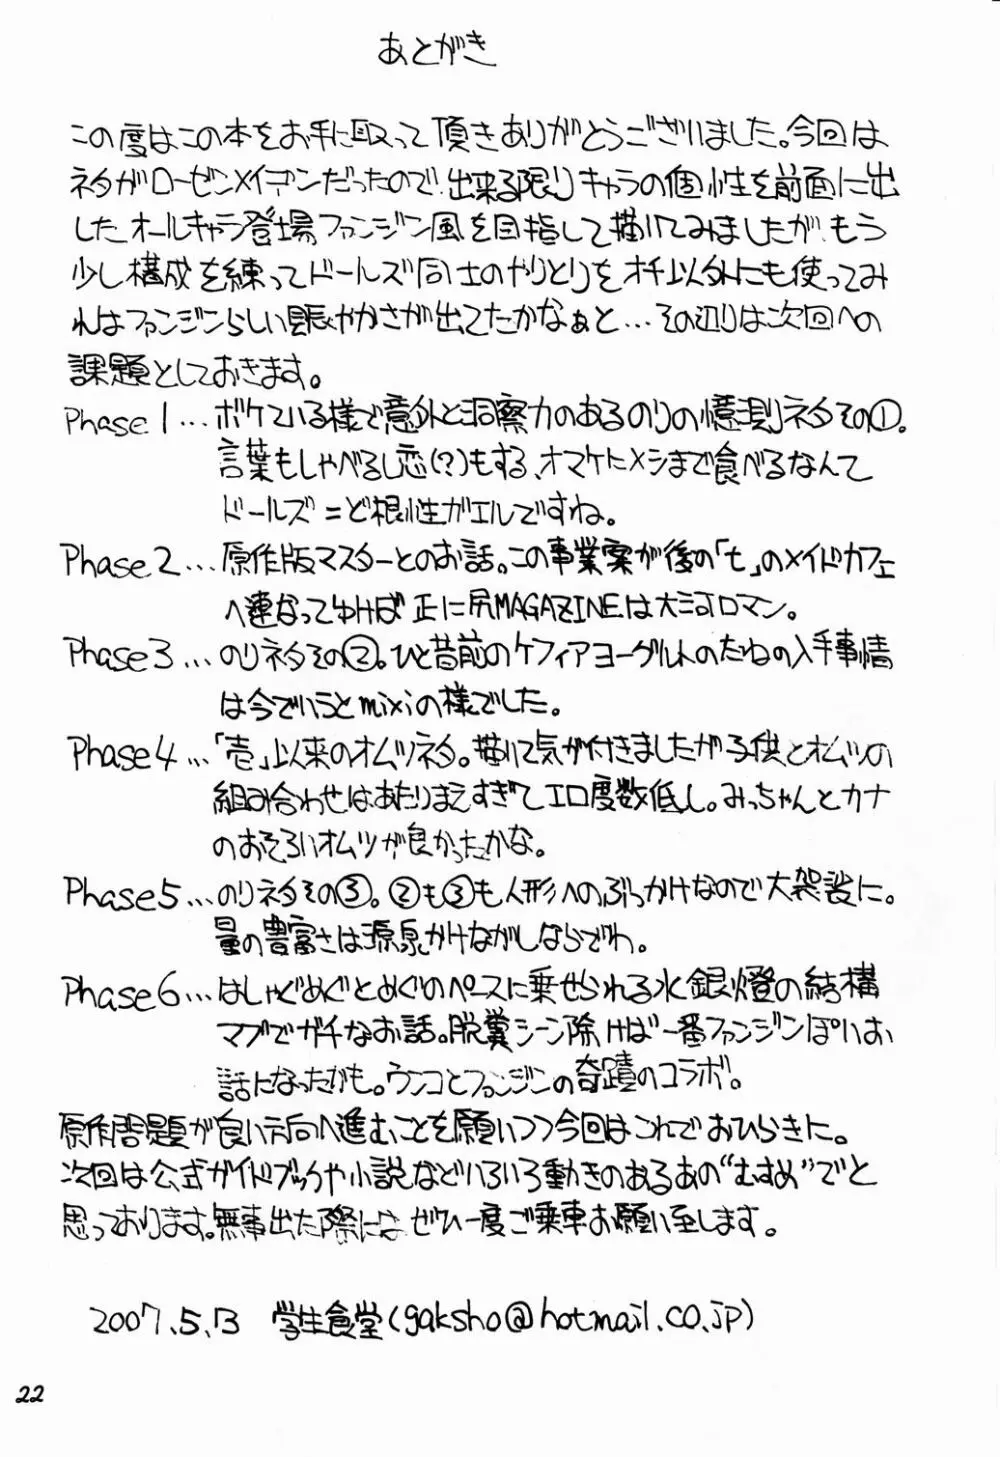 あとがき
この度はこの本をお手に取って頂きありがとうございました。今回は
ネタがローゼンメイデンだったので、出来る限りキャラの個性を前面に出
したオールキャラ登場ファンジン風を目指して描いてみましたが、もう
少し構成を練ってドールズ同士のやりとりをオチ以外にも使ってみ
ればファンジンらしい賑やかさが出てたかなぁと…その辺りは次回への
課題としておきます。
Phase.1…ボケている様で意外と洞察力のあるのりの憶測ネタその①。
言葉もしゃべるし恋(?)もする、オマケにメシまで食べるなんて
ドールズ=ど根性ガエルですね。
Phase.2…原作版マスターとのお話。この事業案が後の「t」のメイドカフェ
へ連なってゆけば正に尻MAGAZINEは大河ロマン。
Phase3…のりネタその②。ひと昔前のケフィアヨーグルトのたねの入手事情
は今でいうとmixiの様でした。
Phase4…「壱」以来のオムツネタ。描いて気が付きましたが子供とオムツの
組み合わせはあたりまえすぎてエロ度数低し。みっちゃんとカナ
のおそろいオムツが良かったかな。
Phase5…のりネタその③。②も③も人形へのぶっかけなので大袈裟に。
量の豊富さは源泉かけながしならでわ。
Phase6…はしゃぐめぐとめぐのペースに乗せられる水銀燈の結構
マブでガチなお話。脱糞シーン除けば一番ファンジンぽいお
話になったかも。ウンコとファンジンの奇蹟のコラボ。
原作問題が良い方向へ進むことを願いつつ今回はこれでおひらきに。
次回は公式ガイドブックや小説などいろいろ動きのあるあの“むすめ”でと
思っております。無事出た際にはぜひ一度ご乗車お願い致します。
2007.5.13 学生食堂(gaksho@hotmail.co.jp)
22